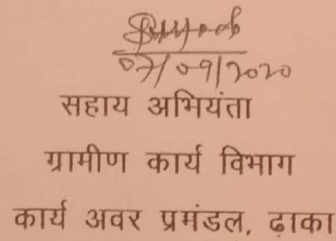 07/09/2020
सहाय अभियंता
ग्रामीण कार्य विभाग
कार्य अवर प्रमंडल, ढ़ाका